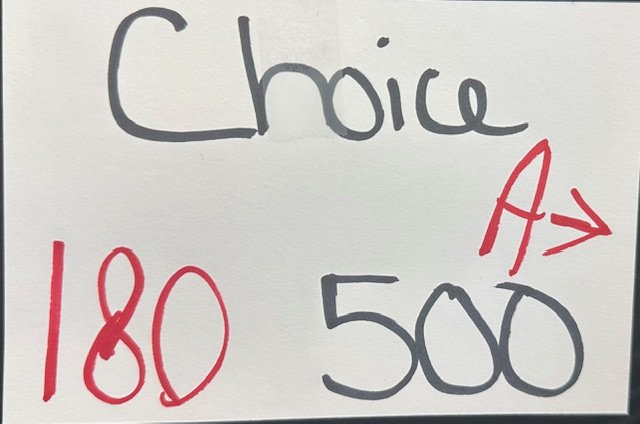 Choice
A→
180 500